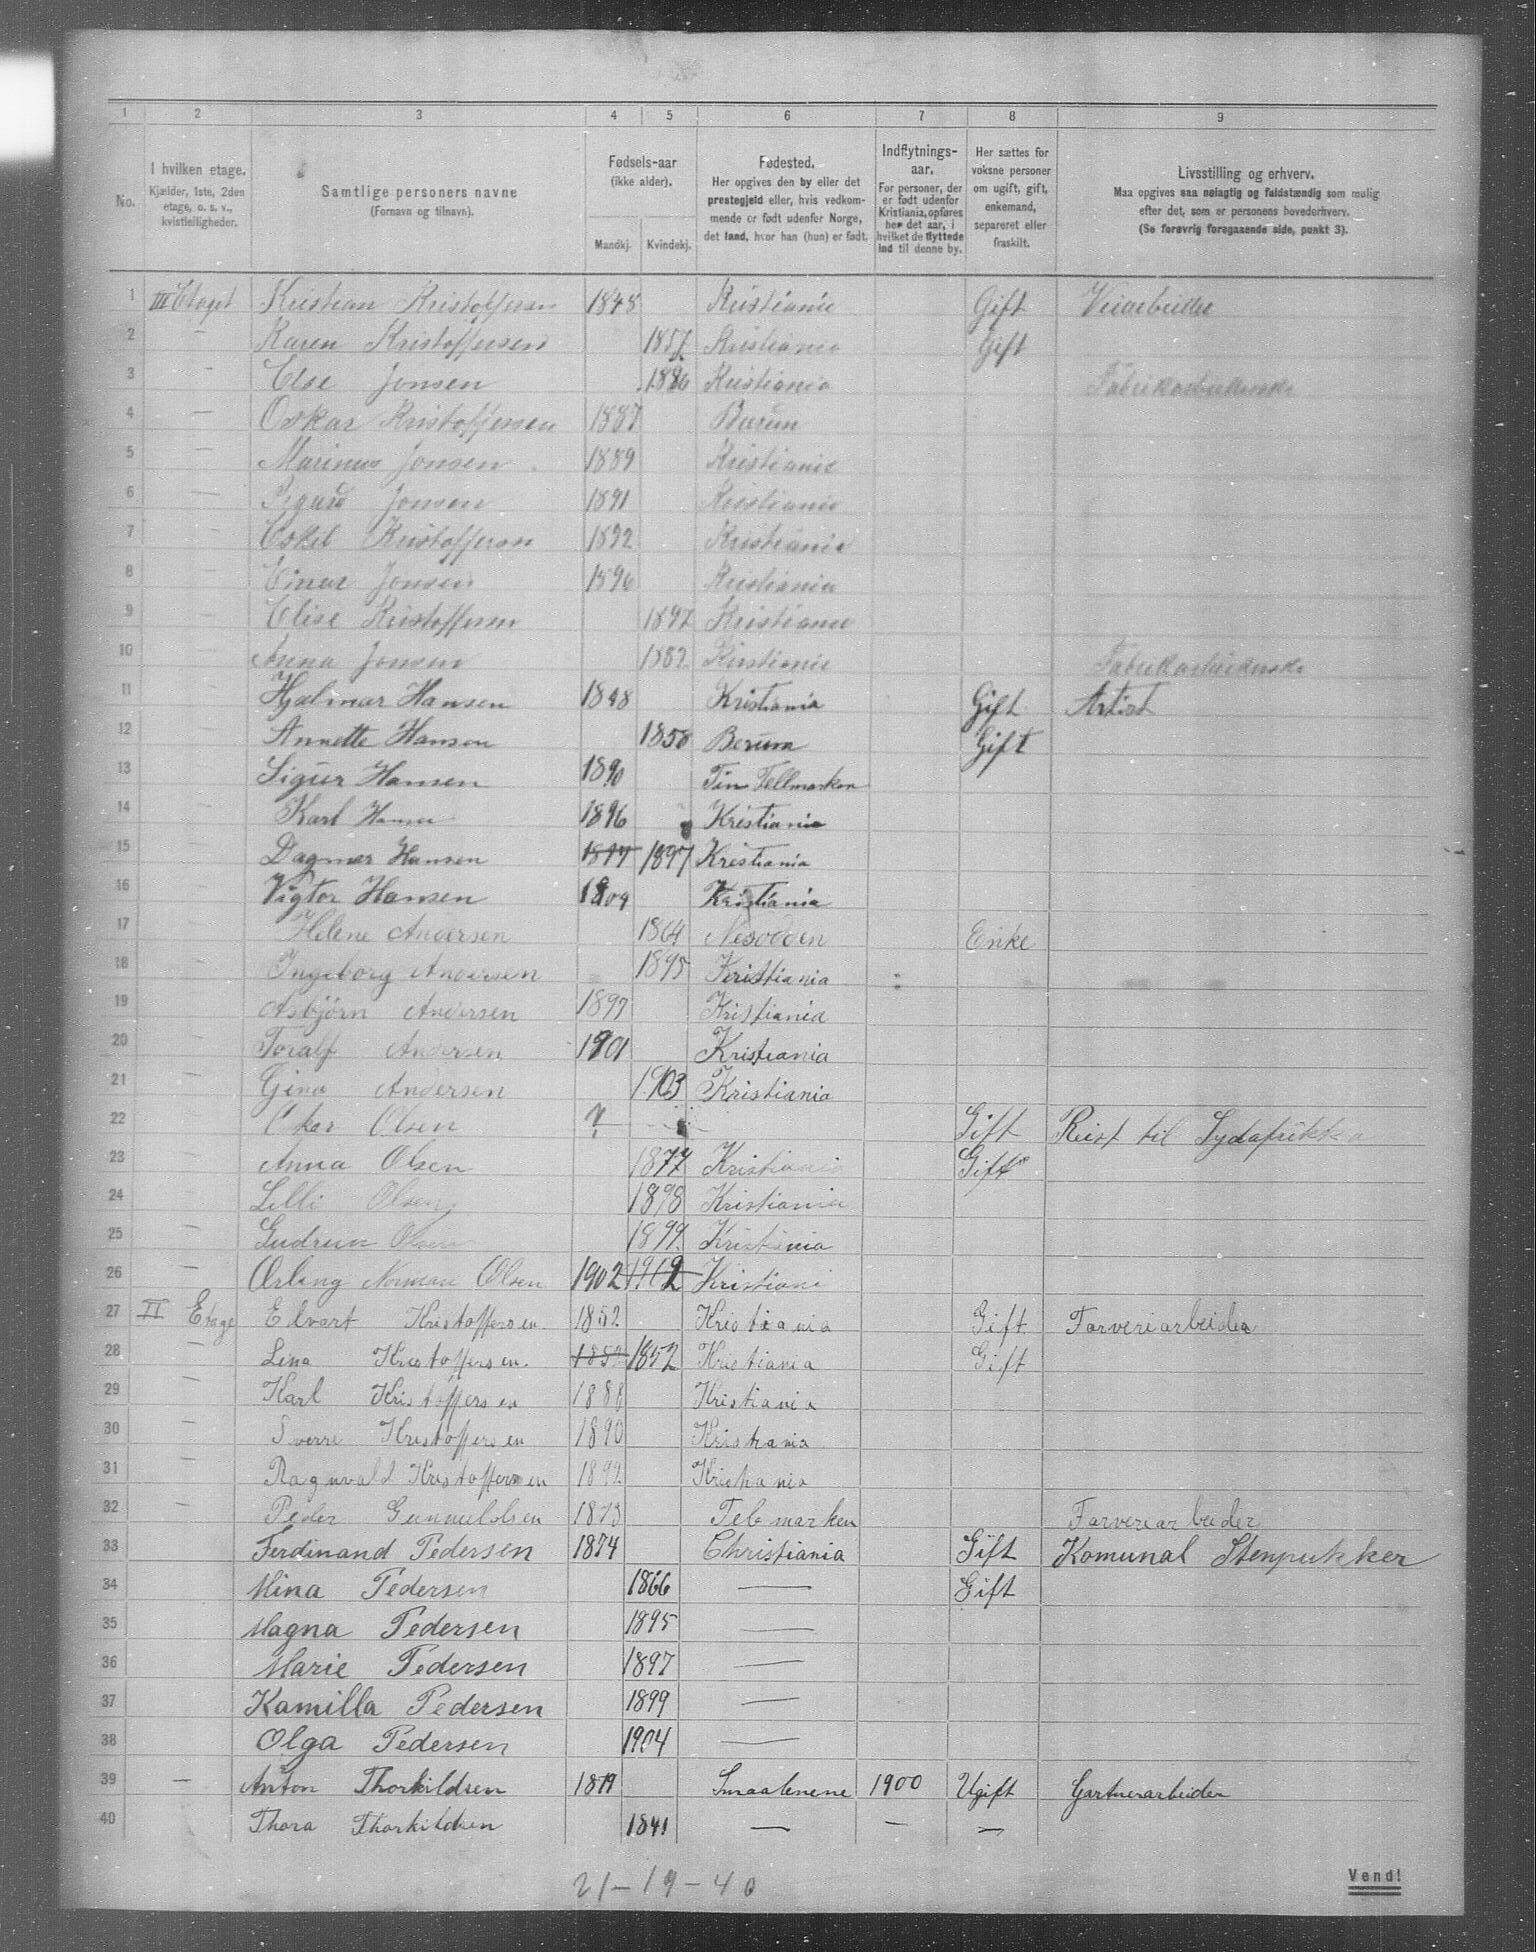 1 2 3 4 5 6 7 8 9
No.
I hvilken etage.
Kjælder, 1ste, 2den
etage, o. s. v.,
kvistleiligheder.
Samtlige personers navne
(Fornavn og tilnavn).
Fødsels-aar
(ikke alder).
Mandkj. Kvindekj.
Fødested.
Her opgives den by eller det
prestegjeld eller, hvis vedkom-
mende er født udenfor Norge,
det land, hvor han (hun) er født.
Indflytnings-
aar.
For personer, der
er født udenfor
Kristiania, opføres
her det aar, i
hvilket de flyttede
ind til denne by.
Her sættes for
voksne personer
om ugift, gift,
enkemand,
separeret eller
fraskilt.
Livsstilling og erhverv.
Maa opgives saa nøiagtig og fuldstændig som mulig
efter det, som er personens hovederhverv.
(Se forøvrig foregaaende side, punkt 3).
1 III Etaget Kristian Kristoffersen 1848 Kristiania Gift Veiarbeider
2 – Karen Kristoffersen 1857 Kristiania Gift
3 – Else Jonsen 1886 Kristiania Fabrikarbeiderske
4 – Oskar Kristoffersen 1887 Bærum
5 – Marinus Jonsen 1889 Kristiania
6 – Sigurd Jonsen 1891 Kristiania
7 – Eskil Kristoffersen 1892 Kristiania
8 – Einar Jonsen 1896 Kristiania
9 – Elise Kristoffersen 1897 Kristiania
10 – Anna Jonsen 1882 Kristiania Fabrikarbeiderske
11 – Hjalmar Hansen 1848 Kristiania Gift Artist
12 – Annette Hansen 1850 Berum Gift
13 – Sigur Hansen 1890 Tin Tellmarken
14 – Karl Hansen 1896 Kristiania
15 – Dagmar Hansen 1897 1897 Kristiania
16 – Vigtor Hansen 1904 Kristiania
17 – Helene Andersen 1864 Nesodden Enke
18 – Ingeborg Andersen 1895 Kristiania
19 – Asbjörn Andersen 1897 Kristiania
20 – Toralf Andersen 1901 Kristiania
21 – Gina Andersen 1903 Kristiania
22 – Oskar Olsen ? – Gift Reist til Sydafrikka
23 – Anna Olsen 1877 Kristiania Gift
24 – Lilli Olsen 1898 Kristiania
25 – Gudrun Olsen 1899 Kristiania
26 – Erling Norman Olsen 1902 1902 Kristiani
27 II Etage Edvart Kristoffersen 1852 Kristiania Gift Farveriarbeider
28 – Lina Kristoffersen 1852 1852 Kristiania Gift
29 – Karl Kristoffersen 1888 Kristiania
30 – Sverre Kristoffersen 1890 Kristiania
31 – Ragnvald Kristoffersen 1892 Kristiania
32 – Peder Gunnuldsen 1873 Telemarken Farveriarbeider
33 Ferdinand Pedersen 1874 Christiania Gift Komunal Stenpukker
34 Mina Pedersen 1866 — Gift
35 Magna Pedersen 1895 —
36 Marie Pedersen 1897 —
37 Kamilla Pedersen 1899 —
38 Olga Pedersen 1904 —
39 – Anton Thorkildsen 1879 Smaalenene 1900 Ugift Gartnerarbeider
40 Thora Thorkildsen 1841 — — —
21–19–40
Vend!